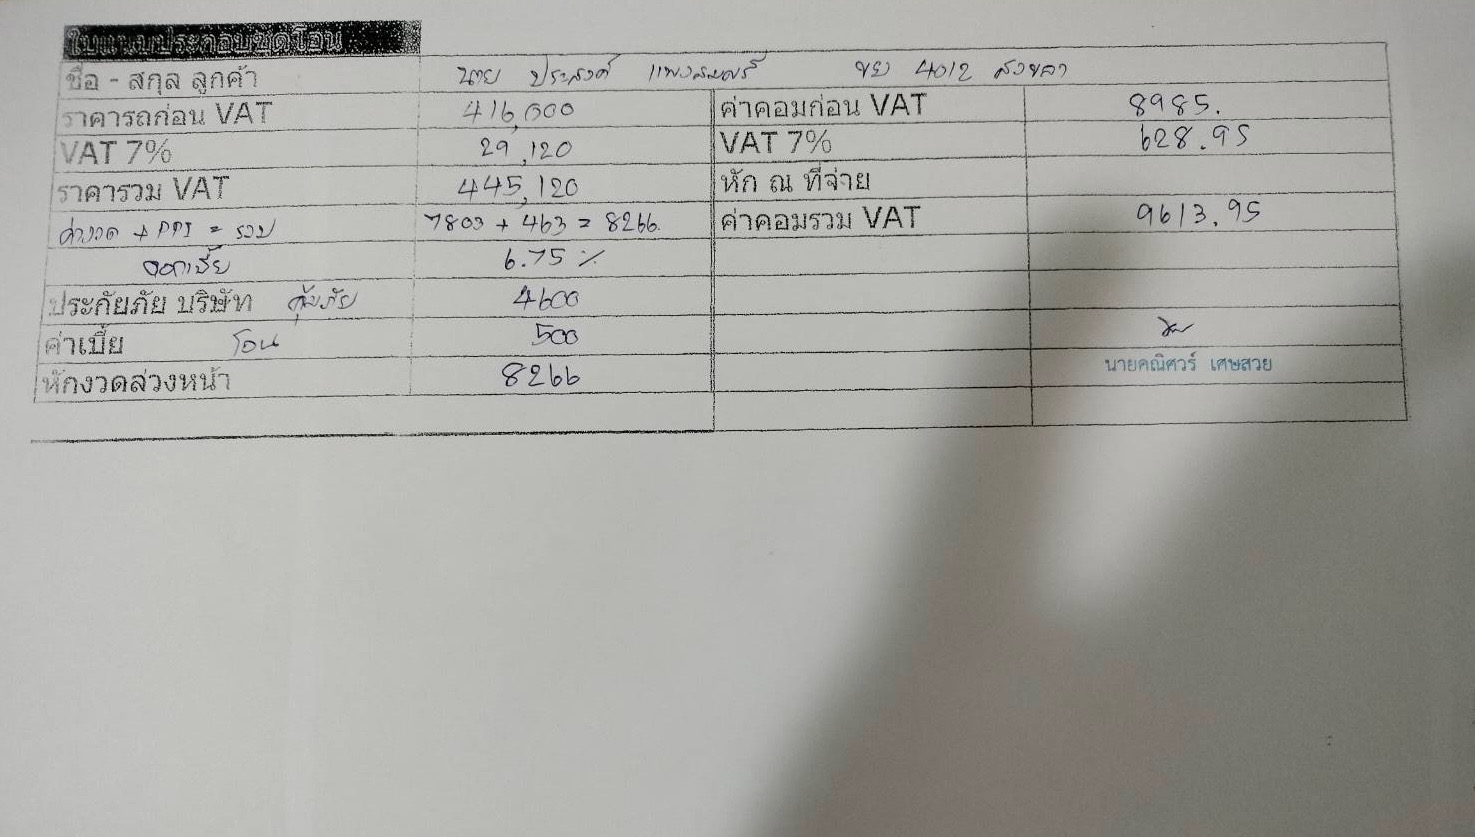 ใบแนบประกอบชุดโอน
ชื่อ - สกุล ลูกค้า นาย ประสงค์ ขย 4012 สงขลา
ราคารถก่อน VAT 416,000 ค่าคอมก่อน VAT 8985.
VAT 7% 29,120 VAT 7% 628.95
ราคารวม VAT 445,120 หัก ณ ที่จ่าย
ค่างวด + PPI = รวม 7803 + 463 = 8266. ค่าคอมรวม VAT 9613.95
ดอกเบี้ย 6.75 %
ประกัยภัย บริษัท คุ้มภัย 4600
ค่าเบี้ย โอน 500
หักงวดล่วงหน้า 8266 นายคณิศวร์ เศษสวย